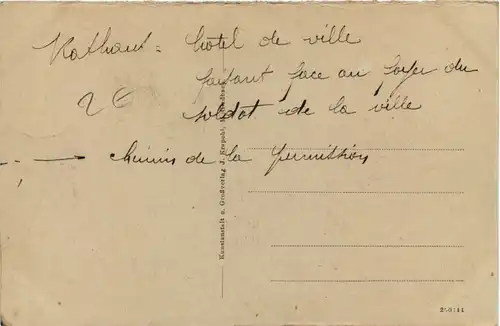 Rathaus = hôtel de ville
faisant face au foyer du
soldat de la ville
2 €
- - - → chemin de la permission
Kunstanstalt u. Großverlag J. Krapohl,
250111